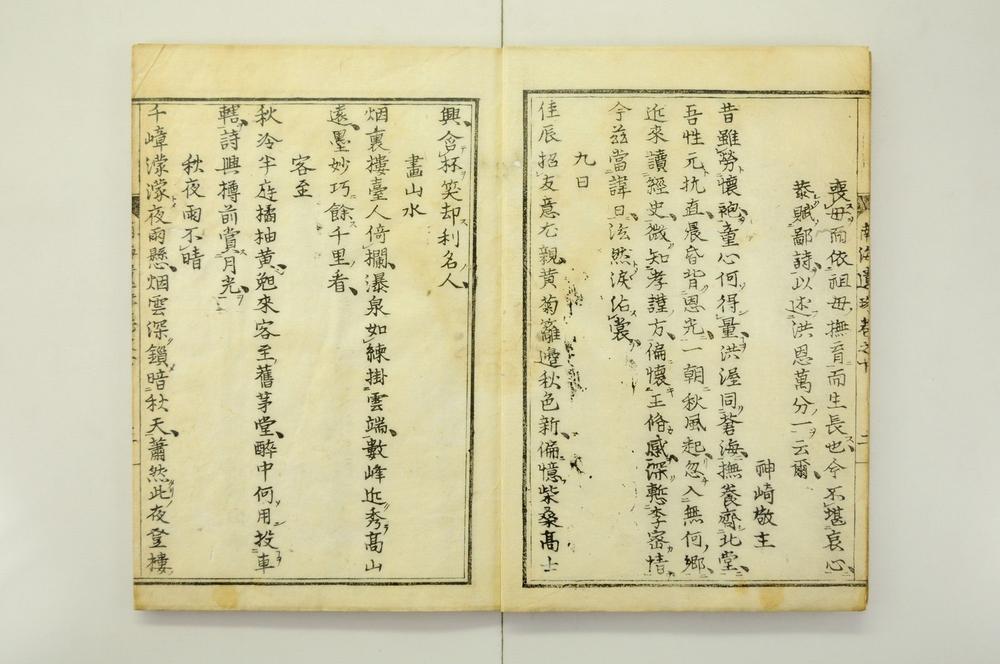 喪母而依祖母撫育而生長也今不堪哀心
恭賦鄙詩以述洪恩萬分一云爾
神崎敬主
昔雖勞懷袍童心何得量洪渥同蒼海撫養齊北堂
吾性元抗直晨昏背恩光一朝秋風起忽入無何鄉
近來讀經史微知孝謹方偏懷王脩感深慙李密情
今茲當諱日泫然淚沾裳
九日
佳辰招友意尤親黄菊籬邊秋色新偏憶柴桑高士
興含杯笑却利名人
畫山水
烟裏樓臺人倚欄瀑泉如練掛雲端數峰近秀高山
遠墨妙巧餘千里看
客至
秋冷半庭橘柚黄匏來客至舊茅堂醉中何用投車
轄詩興樽前賞月光
秋夜雨不晴
千嶂濛濛夜雨懸烟雲深鎖暗秋天蕭然此夜登樓